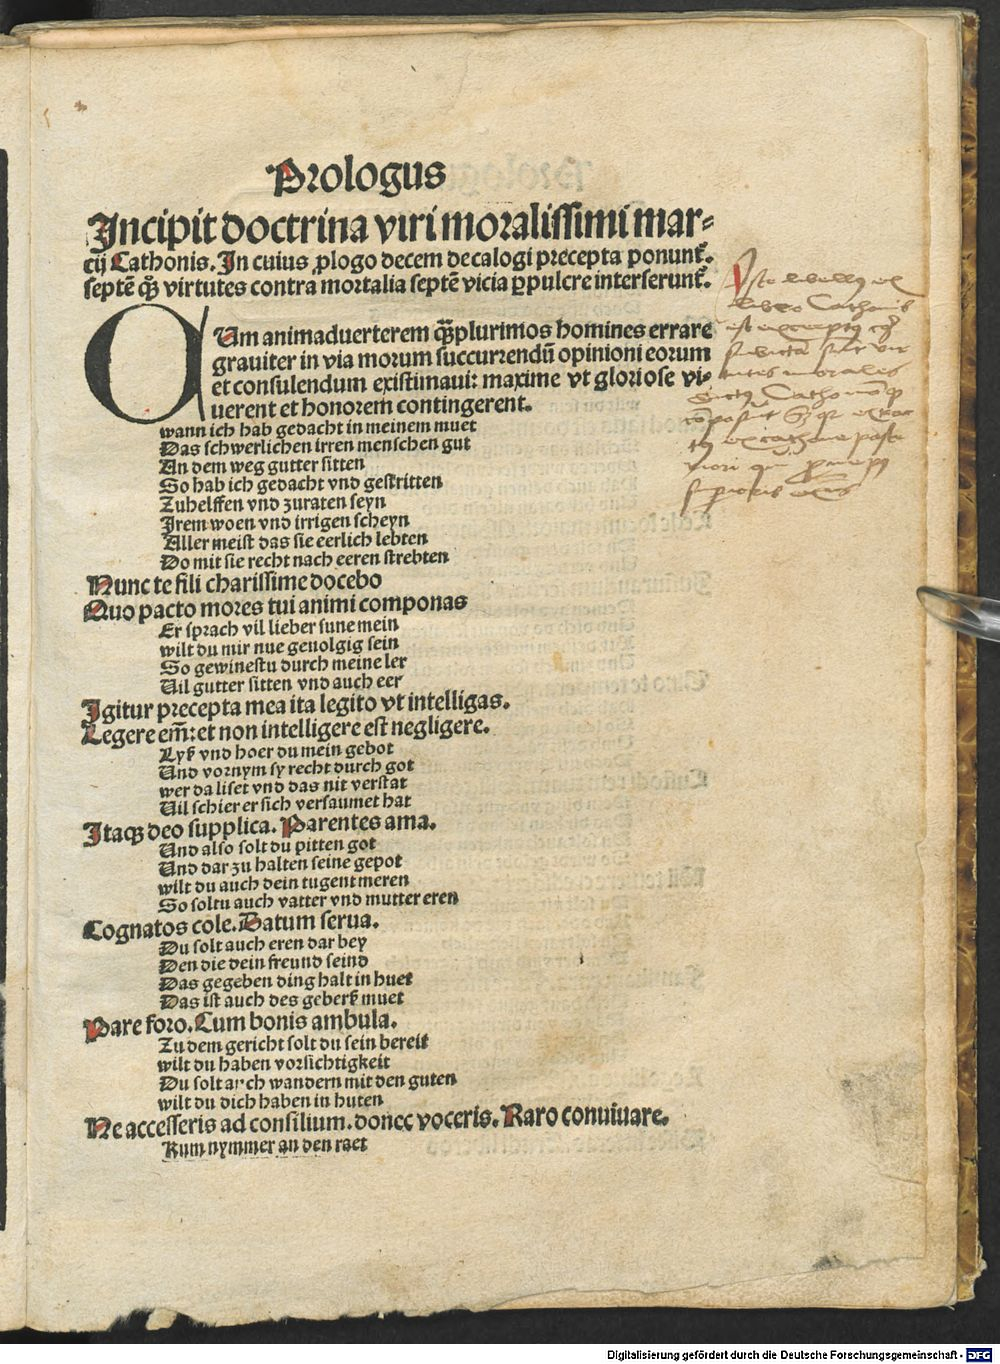 Prologus
Incipit doctrina viri moralissimi mar-
cij Cathonis. In cuius ꝓlogo decem decalogi precepta ponunt᷑.
septē qꝫ virtutes contra mortalia septē vicia ꝑpulcre interserunt᷑.
QUm animaduerterem qꝫplurimos homines errare
grauiter in via morum succurrendū opinioni eorum
et consulendum existimaui: maxime vt gloriose vi-
uerent et honorem contingerent.
wann ich hab gedacht in meinem muet
Das schwerlichen irren menschen gut
An dem weg gutter sitten
So hab ich gedacht vnd gestritten
Zuhelffen vnd zuraten seyn
Irem woen vnd irrigen scheyn
Aller meist das sie eerlich lebten
Do mit sie recht nach eeren strebten
Nunc te fili charissime docebo
Quo pacto mores tui animi componas
Er sprach vil lieber sune mein
wilt du mir nue geuolgig sein
So gewinestu durch meine ler
Uil gutter sitten vnd auch eer
Igitur precepta mea ita legito vt intelligas.
Legere em̄: et non intelligere est negligere.
Lyß vnd hoer du mein gebot
Und vornym sy recht durch got
wer da liset vnd das nit verstat
Uil schier er sich versaumet hat
Itaqꝫ deo supplica. Parentes ama.
Und also solt du pitten got
Und dar zu halten seine gepot
wilt du auch dein tugent meren
So soltu auch vatter vnd mutter eren
Cognatos cole. Datum serua.
Du solt auch eren dar bey
Den die dein freund seind
Das gegeben ding halt in huet
Das ist auch des geberß muet
Pare foro. Cum bonis ambula.
Zu dem gericht solt du sein bereit
wilt du haben vorsichtigkeit
Du solt auch wandern mit den guten
wilt du dich haben in huten
Ne accesseris ad consilium. donec voceris. Raro conuiuare.
Kum nymmer an den raet
Iste libellꝰ
libro Cathonis
est exceptꝰ
morales
ex cathone
Digitalisierung gefördert durch die Deutsche Forschungsgemeinschaft - DFG